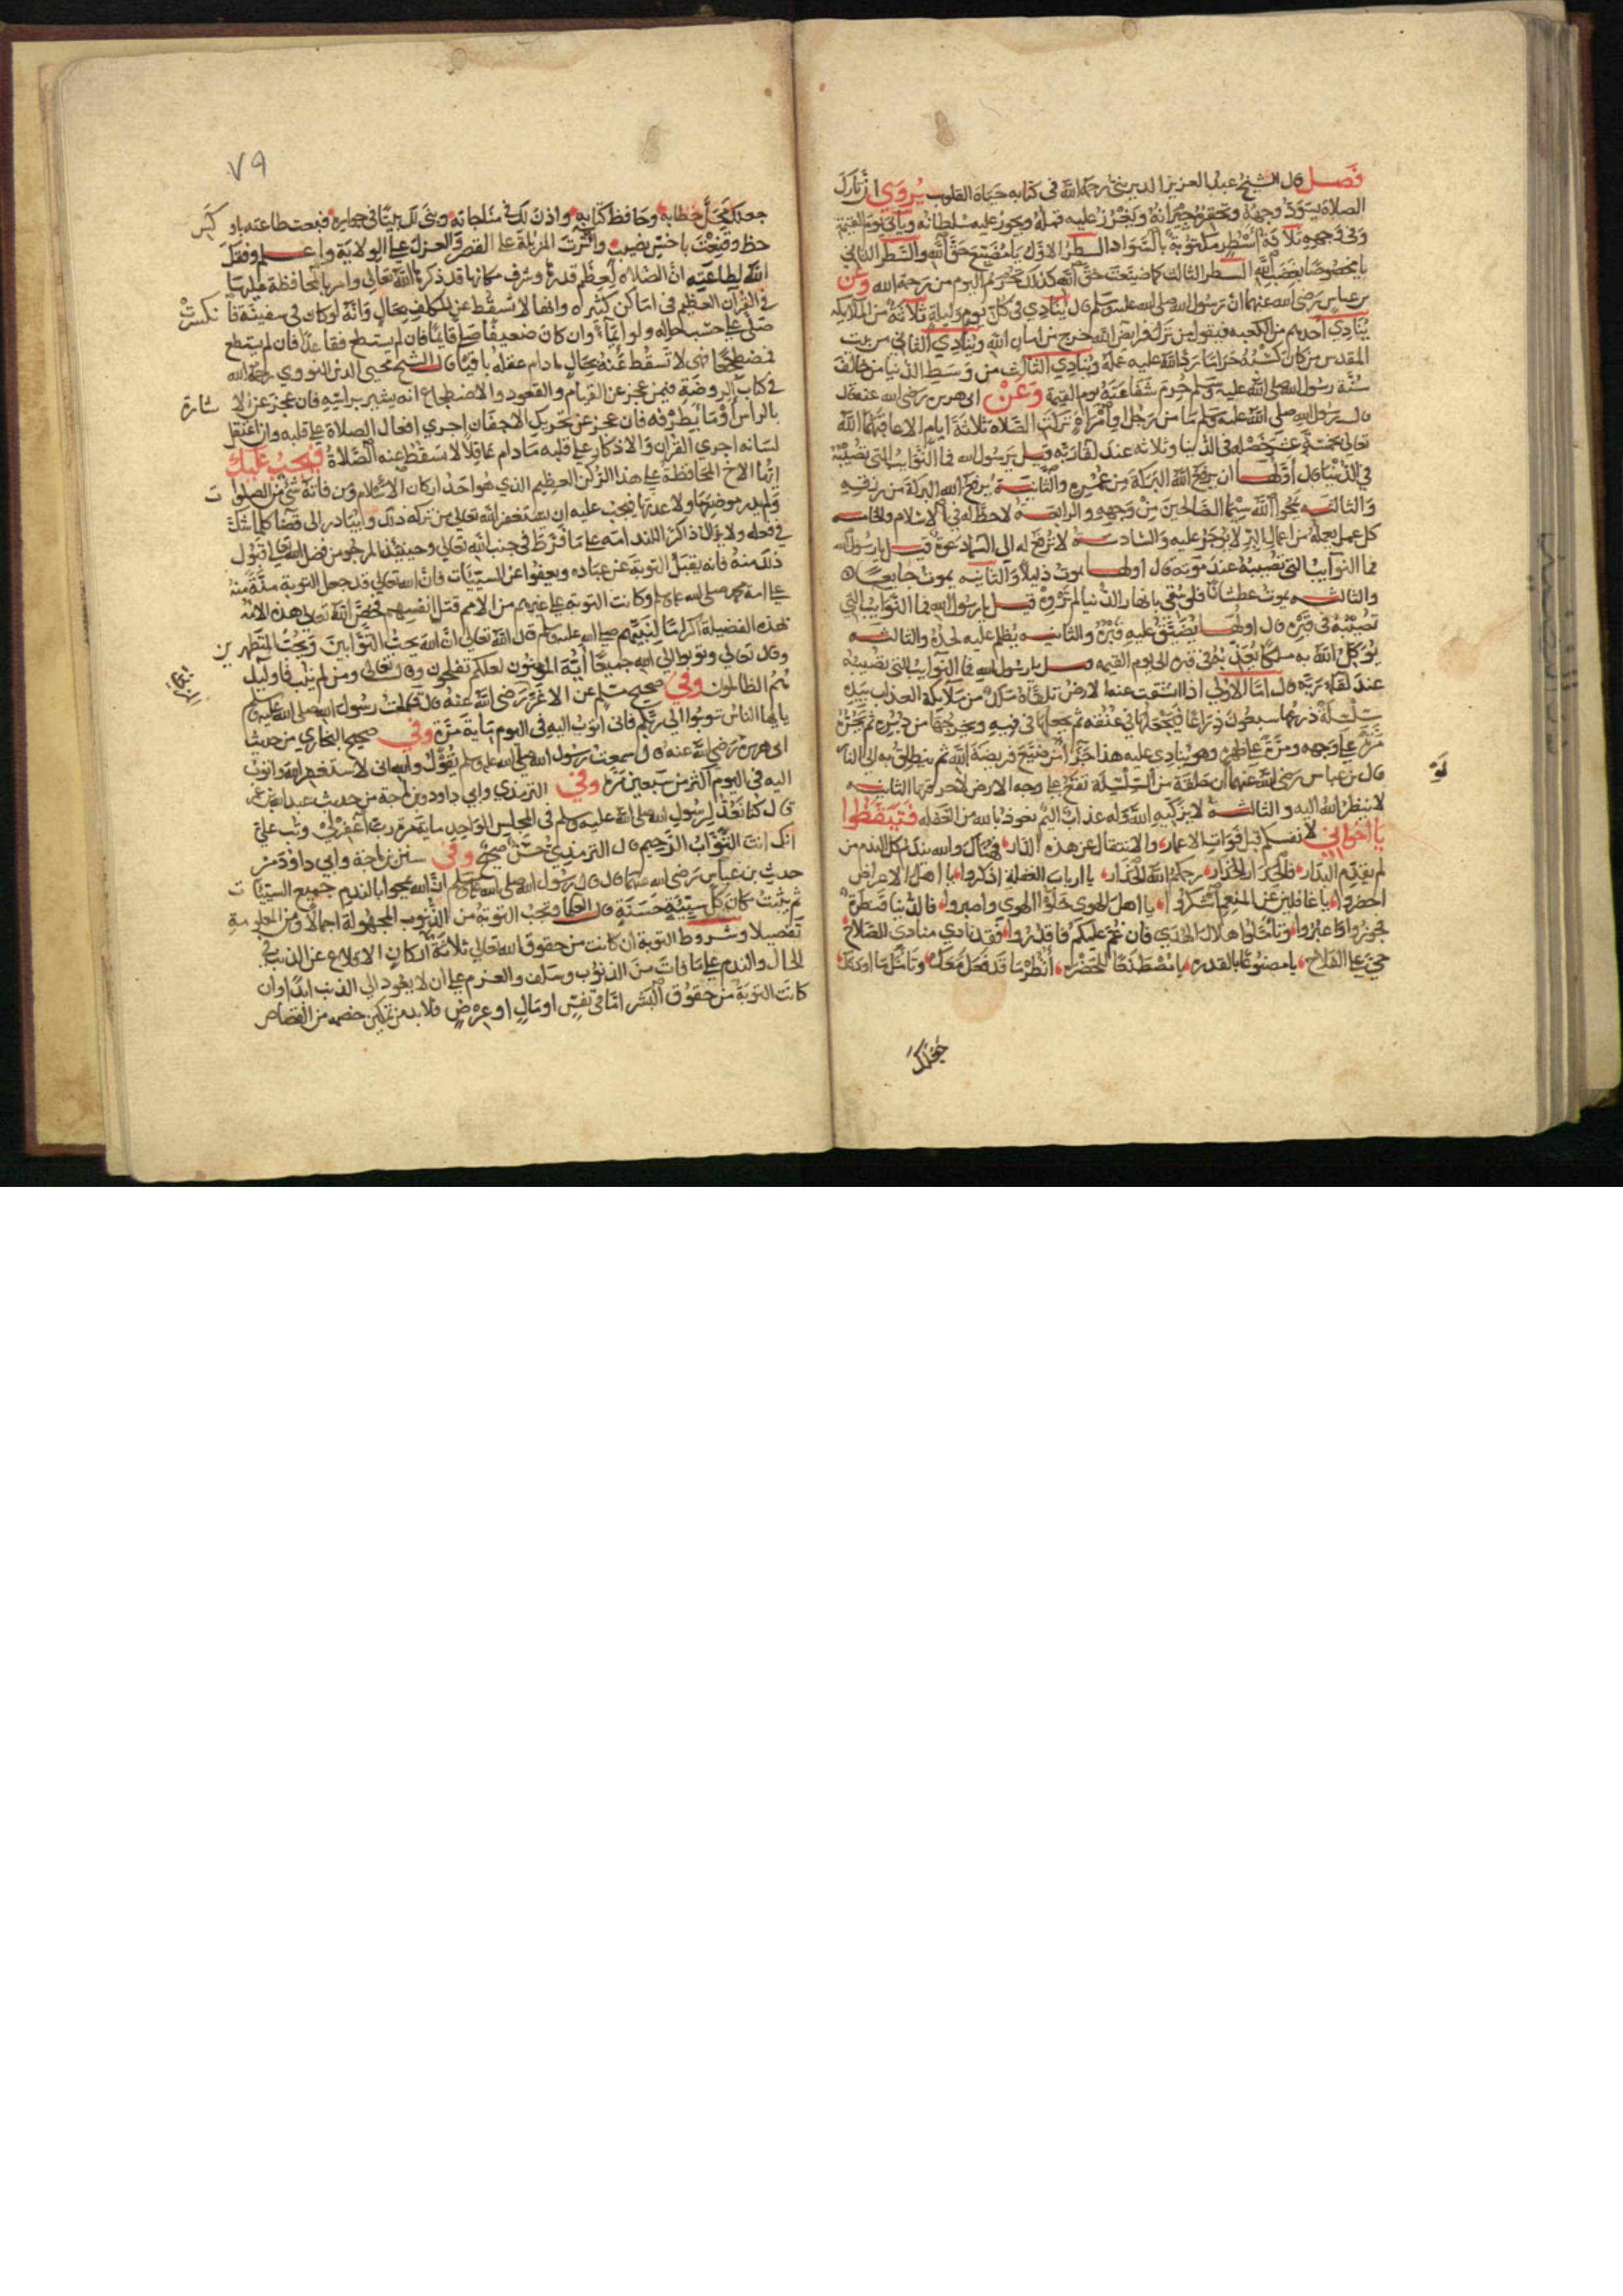 فصل قال الشيخ عبد العزيز الديريني رحمه الله في كتابه حياة القلوب يروي ان تارك
الصلاة يسود وجهه وتحقره جيرانه عليه ويجور عليه سلطانه وياتي يوم القيمة
وفي وجهه ثلاثة اسطر مكتوبة بالسواد السطر الاول يا مضيع حق الله والسطر الثاني
يا مخصوصا بغضب الله السطر الثالث كما ضيعت حق الله كذلك تحرم اليوم من رحمة الله وعن
بن عباس رضي الله عنهما ان رسول الله صلى الله عليه وسلم قال ينادي في كل يوم وليلة ثلاثة من الملايكه
ينادي احدهم من الكعبه فيقول من ترك فرايض الله خرج من امان الله وينادي الثاني من بيت
المقدس من كان كسبه حراما رد الله عليه عمله وينادي الثالث من وسط الدنيا من خالف
سنة رسول الله صلى الله عليه وسلم حرم شفاعته يوم القيمة وعن ابي هريره رضي الله عنه قال
قال رسول الله صلى الله عليه وسلم ما من رجل وامراة تركت الصلاة ثلاثة ايام الا عاقبهما الله
تعالى بخمسة عشر خصله في الدنيا وثلاثه عند لقا ربه قيل يرسول الله فما النوايب التي تصيبه
في الدنيا قال اولها ان يرفع الله البركة من عمره والثانية يرفع الله البركة من رزقه
والثالثه يمحوا الله سيما الصالحين من وجهه والرابعة لا حظ له في الاسلام والخامسه
كل عمل يعمله من اعمال البر لا يوجر عليه والسادسة لا ترفع له الى السماء دعوة قيل يا رسول الله
فما النوايب التي تصيبه عند موته قال اولها يموت ذليلا والثانيه يموت جايعا
والثالثه يموت عطشانا فلو سقي بانهار الدنيا لم تروه قيل يا رسول الله فما النوايب التي
تصيبه في قبره قال اولها يضيق عليه قبره والثانيه يظلم عليه لحده والثالثه
يوكل الله به ملكا يعذبه في قبره الى يوم القيمه قيل يا رسول الله فما النوايب التي تصيبه
عند لقاء ربه قال اما الاولى اذا انشقت عنه الارض تلقاه ملك من ملايكة العذاب بيده
سلسلة ذرعها سبعون ذراعا في عنقه ثم يجعلها في فيه ويخرجها من دبره ثم يجره
مرة على وجهه ومرة على ظهره وهو ينادي عليه هذا جزآ من ضيع فريضة الله ثم ينطلق به الى النار
قال بن عباس رضي الله عنهما ان حلقة من السلسلة تقع على وجه الارض لاحرقتها الثانيه
لا ينظر الله اليه والثالثة لا يزكيه الله وله عذاب اليم نعوذ بالله من الغفله فتيقظوا
يا اخواني لانفسكم قبل فوات الاعمار والانتقال عن هذه الدار فهناك والله يندم كل الندم من
لم يقدم البدار فالحذار الحذار رحمكم الله الحذار يا ارباب الغفلة اذكروا يا اهل الاعراض
احضروا يا غافلين عن المنعم اشكروا يا اهل الهوى خلوا الهوى واصبروا فالدنيا قنطرة
فجوزوا واعبروا وتاملوا هلال الهدى فان غم عليكم فاقدروا فقد نادي منادي للصلاح
حي على الفلاح يا مصنوعا بالقدره انظر ما قد فعل معك وتامل ما اودعك
جعلك
لو
٧٩
جعلك محل خطابه وحافظ كتابه واذن لك في مناجاته وبنى لك بيتا في جواره فبعت طاعته باوكس
حظ وقنعت باخس نصيب واثرت المزبلة على القصر والعزل على الولاية واعلم وفقك
الله لطاعته ان الصلاة لعظم قدرها وشرف مكانها قد ذكرها الله تعالى وامر بالمحافظة عليها
في القرآن العظيم في اماكن كثيره وانها لا تسقط عن المكلف بحال وانه لو كان في سفينة فانكسرت
صلى على حسب حاله ولو ايماء وان كان ضعيفا صلى قايما فان لم يستطع فقاعدا فان لم يستطع
فمضطجعا فهي لا تسقط عنه بحال ما دام عقله باقيا قال الشيخ محيي الدين النووي رحمه الله
في كتاب الروضة فيمن عجز عن القيام والقعود والاضطجاع انه يشير براسه فان عجز عن الاشارة
بالراس اومأ بطرفه فان عجز عن تحريك الاجفان اجري افعال الصلاة على قلبه وان اعتقل
لسانه اجري القران والاذكار على قلبه ما دام عاقلا لا تسقط عنه الصلاة فيجب عليك
ايها الاخ المحافظة على هذا الركن العظيم الذي هو احد اركان الاسلام ومن فاته شي من الصلوات
ولم يدر موضعها ولا عدتها فيجب عليه ان يستغفر الله تعالى من تركه ذلك ويبادر الى قضا كلما شك
في فعله ولا يزال ذاكرا للندامة على ما فرط في جنب الله تعالى وحينيذ المرجو من فضل الله تعالى قبول
ذلك منه فانه يقبل التوبة عن عباده ويعفوا عن السيئات فان الله تعالى قد جعل التوبة منة منه
على امة محمد صلى الله عليه وسلم وكانت التوبة على غيرهم من الامم قتل انفسهم فخص الله تعالى هذه الامه
بهذه الفضيلة اكراما لنبيهم صلى الله عليه وسلم قال الله تعالى ان الله يحب التوابين ويحب المتطهرين
وقال تعالى وتوبوا الى الله جميعا ايه المؤمنون لعلكم تفلحون وقال تعالى ومن لم يتب فاوليك
هم الظالمون وفي صحيح مسلم عن الاغر رضي الله عنه قال قال رسول الله صلى الله عليه وسلم
يا ايها الناس توبوا الى ربكم فاني اتوب اليه في اليوم ماية مرة وفي صحيح البخاري من حديث
ابي هريره رضي الله عنه قال سمعت رسول الله صلى الله عليه وسلم يقول والله اني لاستغفر الله واتوب
اليه في اليوم اكثر من سبعين مرة وفي الترمذي وابي داود وبن ماجة من حديث عبد الله بن عمر
قال كنا نعد لرسول الله صلى الله عليه وسلم في المجلس الواحد ماية مرة رب اغفر لي وتب علي
انك انت التواب الرحيم قال الترمذي حسن صحيح وفي سنن بن ماجة وابي داود من
حديث بن عباس رضي الله عنهما قال قال رسول الله صلى الله عليه وسلم ان الله يمحوا بالندم جميع السيئات
ثم يثبت مكان كل سيئة حسنة قال العلما وتجب التوبة من الذنوب المجهولة اجمالا ومن المعلومة
تفصيلا وشروط التوبة ان كانت من حقوق الله تعالى ثلاثة اركان الاقلاع عن الذنب في
الحال والندم على ما فات من الذنوب وسلف والعزم على ان لا يعود الى الذنب ابدا وان
كانت التوبة من حقوق البشر اما في نفس او مال او عرض فلا بد من تمكين خصمه من القصاص